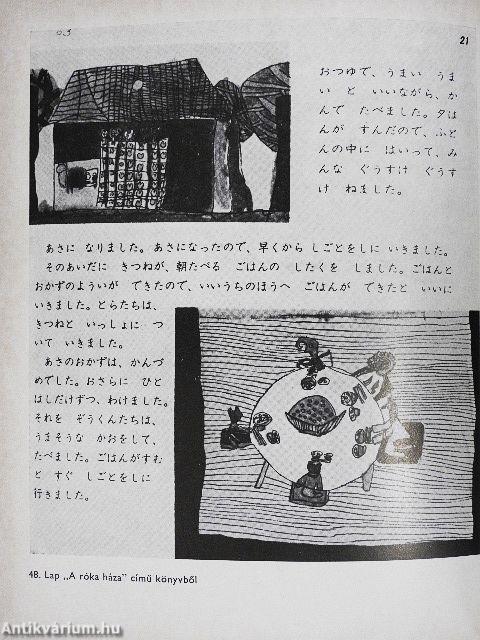 21
おつゆで、うまい うま
い と いいながら、か
んで たべました。夕は
んが すんだので、ふと
んの中に はいって、み
んな ぐうすけ ぐうす
け ねました。
あさに なりました。あさになったので、早くから しごとをしに いきました。
そのあいだに きつねが、朝たべる ごはんの したくを しました。ごはんと
おかずのよういが できたので、いいうちのほうへ ごはんが できたと いいに
いきました。とらたちは、
きつねと いっしょに つ
いて いきました。
あさのおかずは、かんづ
めでした。おさらに ひと
はしだけずつ、わけました。
それを ぞうくんたちは、
うまそうな かおをして、
たべました。ごはんがすむ
と すぐ しごとをしに
行きました。
48. Lap „A róka háza" című könyvből
Antikvárium.hu